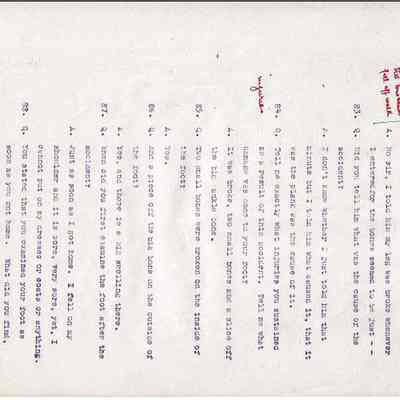 his
fell off walk
A. No sir, I told him my leg was broke whenever
I entered for the bones seemed to be just - -
83. Q. Did you tell him what was the cause or the
accident?
A. I don't know whether I just told him that
minute but I told him what caused it, that it
was the plank was the cause of it.
84. Q. Tell me exactly what injuries you sustained
as a result of this accident. Tell me what
damage was done to your foot?
injuries
A. It was broke, two small bones and a slice off
the big ankle bone.
85. Q. Two small bones were broken on the inside of
the foot?
A. Yes.
86. Q. And a piece off the big bone on the outside of
the foot?
A. Yes, and there is a big swelling there.
87. Q. When did you first examine the foot after the
accident?
A. Just as soon as I got home. I fell on my
shoulder and it is sore, very sore, yet. I
cannot put on my dresses or coats or anything.
88. Q. You stated that you examined your foot as
soon as you got home. What did you find,